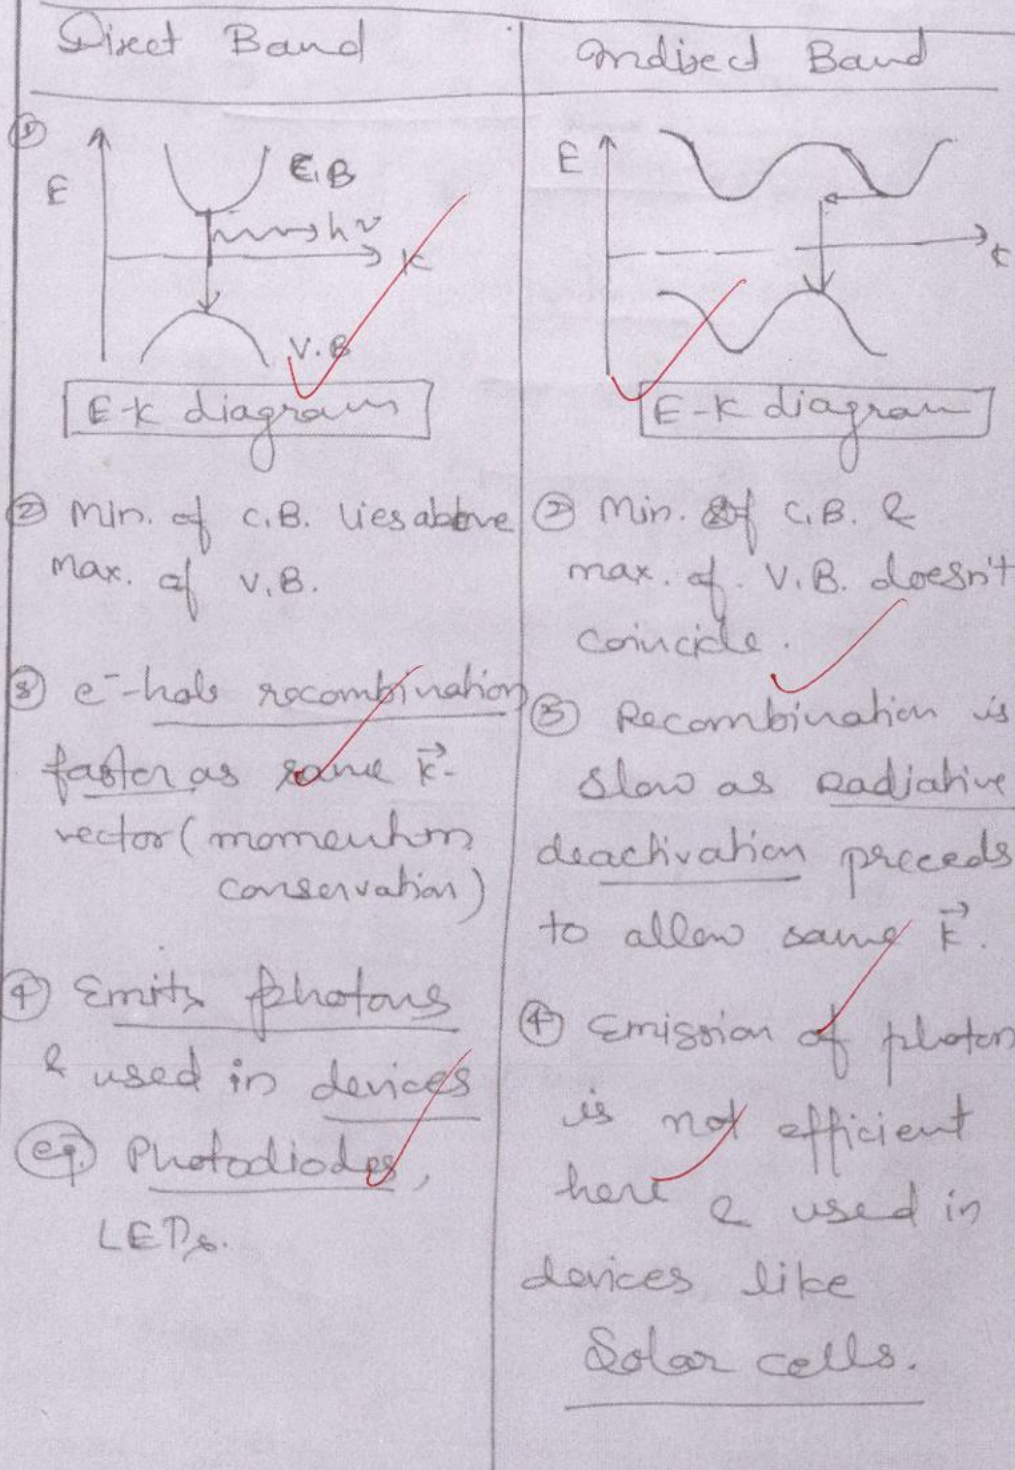 Direct Band
①
E
C.B
hν
K
V.B
E-K diagram
② Min. of C.B. lies above
max. of V.B.
③ e⁻-hole recombination
faster as same k⃗-
vector (momentum
conservation)
④ Emits photons
& used in devices
eg. Photodiodes,
LEDs.
Indirect Band
E
K
E-K diagram
② Min. of C.B. &
max. of V.B. doesn't
coincide.
③ Recombination is
slow as radiative
deactivation preceeds
to allow same k⃗.
④ Emission of photon
is not efficient
here & used in
devices like
Solar cells.